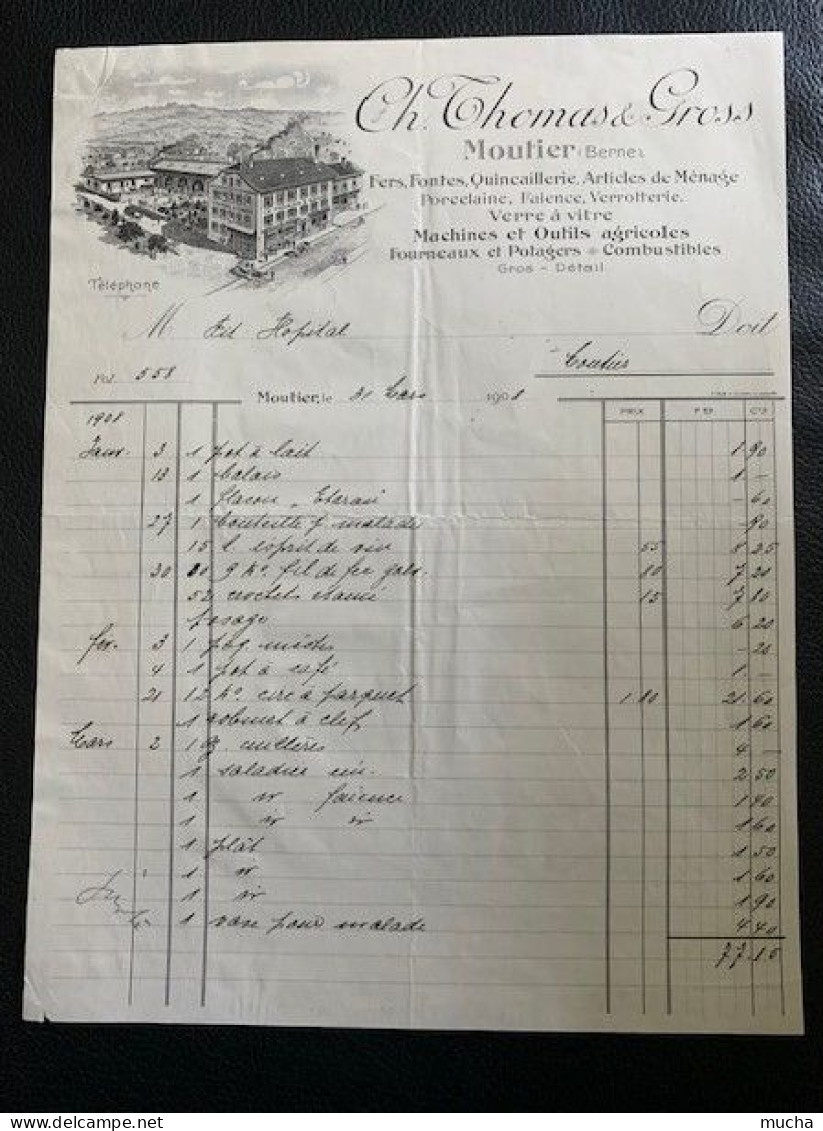 Ch. Thomas & Gross
Moutier (Berne).
Fers, Fontes, Quincaillerie, Articles de Ménage
Porcelaine, Faïence, Verrotterie.
Verre à vitre
Machines et Outils agricoles
Fourneaux et Potagers Combustibles
Gros - Détail
Téléphone
M Hopital Doit
Fol. 558 Moutier
Moutier, le 31 Mars 1908
PRIX FRS CTS
1908
Janv. 3 1 pot à lait 1 90
13 1 balais 1. -
1 flacon - 60
27 1 bouteille p. malades - 90
15 l. esprit de vin 55 8 25
30 9 ko. fil de fer galv. 80 7 20
52 crochets 15 7 80
posage 6 20
fev. 3 1 paq. mèches - 20
4 1 pot à café 1. -
21 12 ko. cire à parquet 1 80 21. 60
1 robinet à clef 1 60
Mars 2 1 cuillères 4 -
1 saladier 2 50
1 " faience 1 40
1 " " 1 60
1 plât 1 50
1 " 1 60
1 " 1 90
1 vase pour malade 4 40
77. 15
mucha